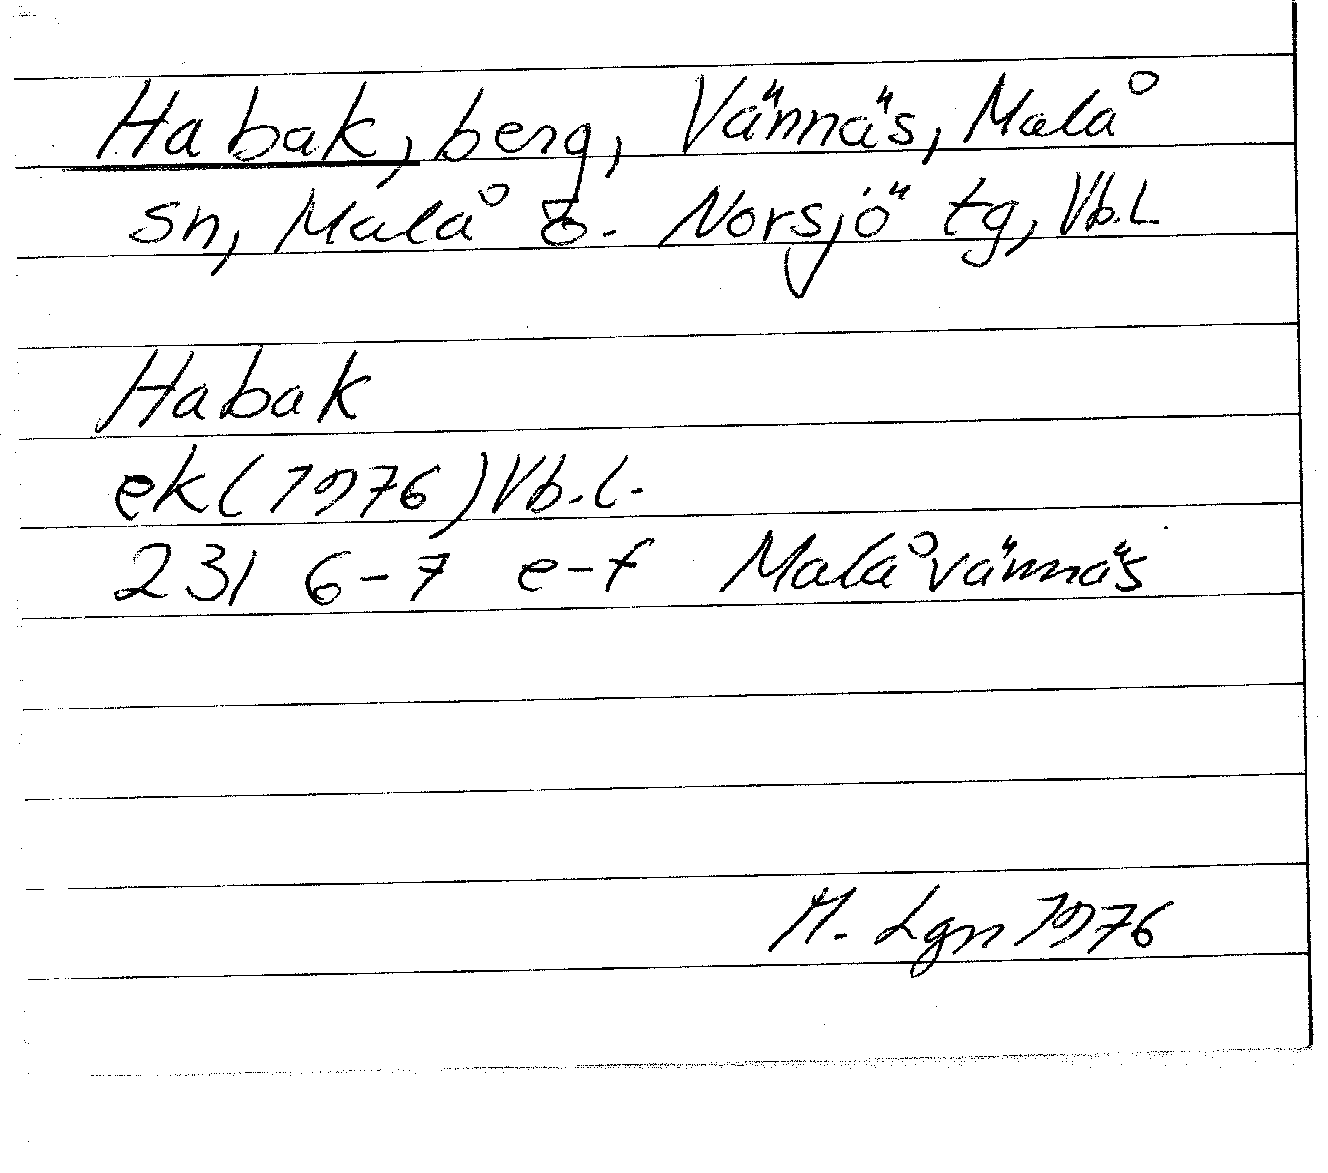 Habak, berg, Vännäs, Malå
sn, Malå o. Norsjö tg, Vb.L
Habak
ek (1976) Vb.l.
231 6-7 e-f Malåvännäs
M. Lgn 1976